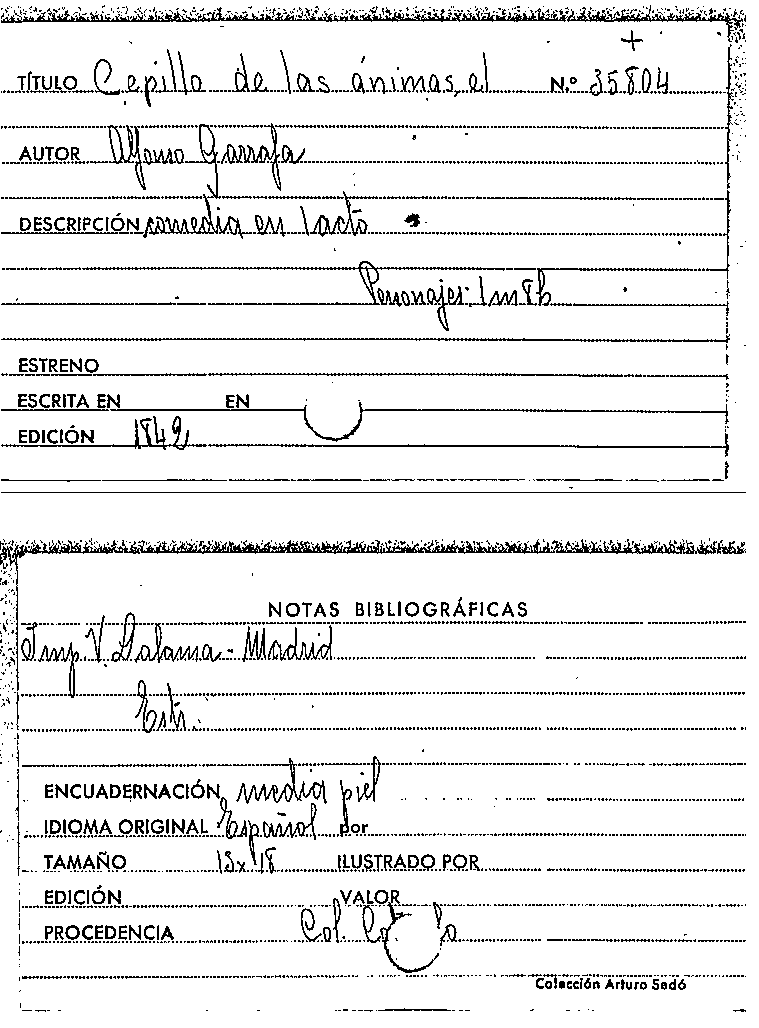 +
TÍTULO Cepillo de las ánimas, el N.º 35804
AUTOR Alfonso Garrafa
DESCRIPCIÓN comedia en 1 acto
Personajes: 1m 8h
ESTRENO
ESCRITA EN EN
EDICIÓN 1842
NOTAS BIBLIOGRÁFICAS
Imp. V. Lalama - Madrid
Estr.
ENCUADERNACIÓN media piel
IDIOMA ORIGINAL Español por
TAMAÑO ILUSTRADO POR
EDICIÓN VALOR
PROCEDENCIA Col.
Colección Arturo Sedó